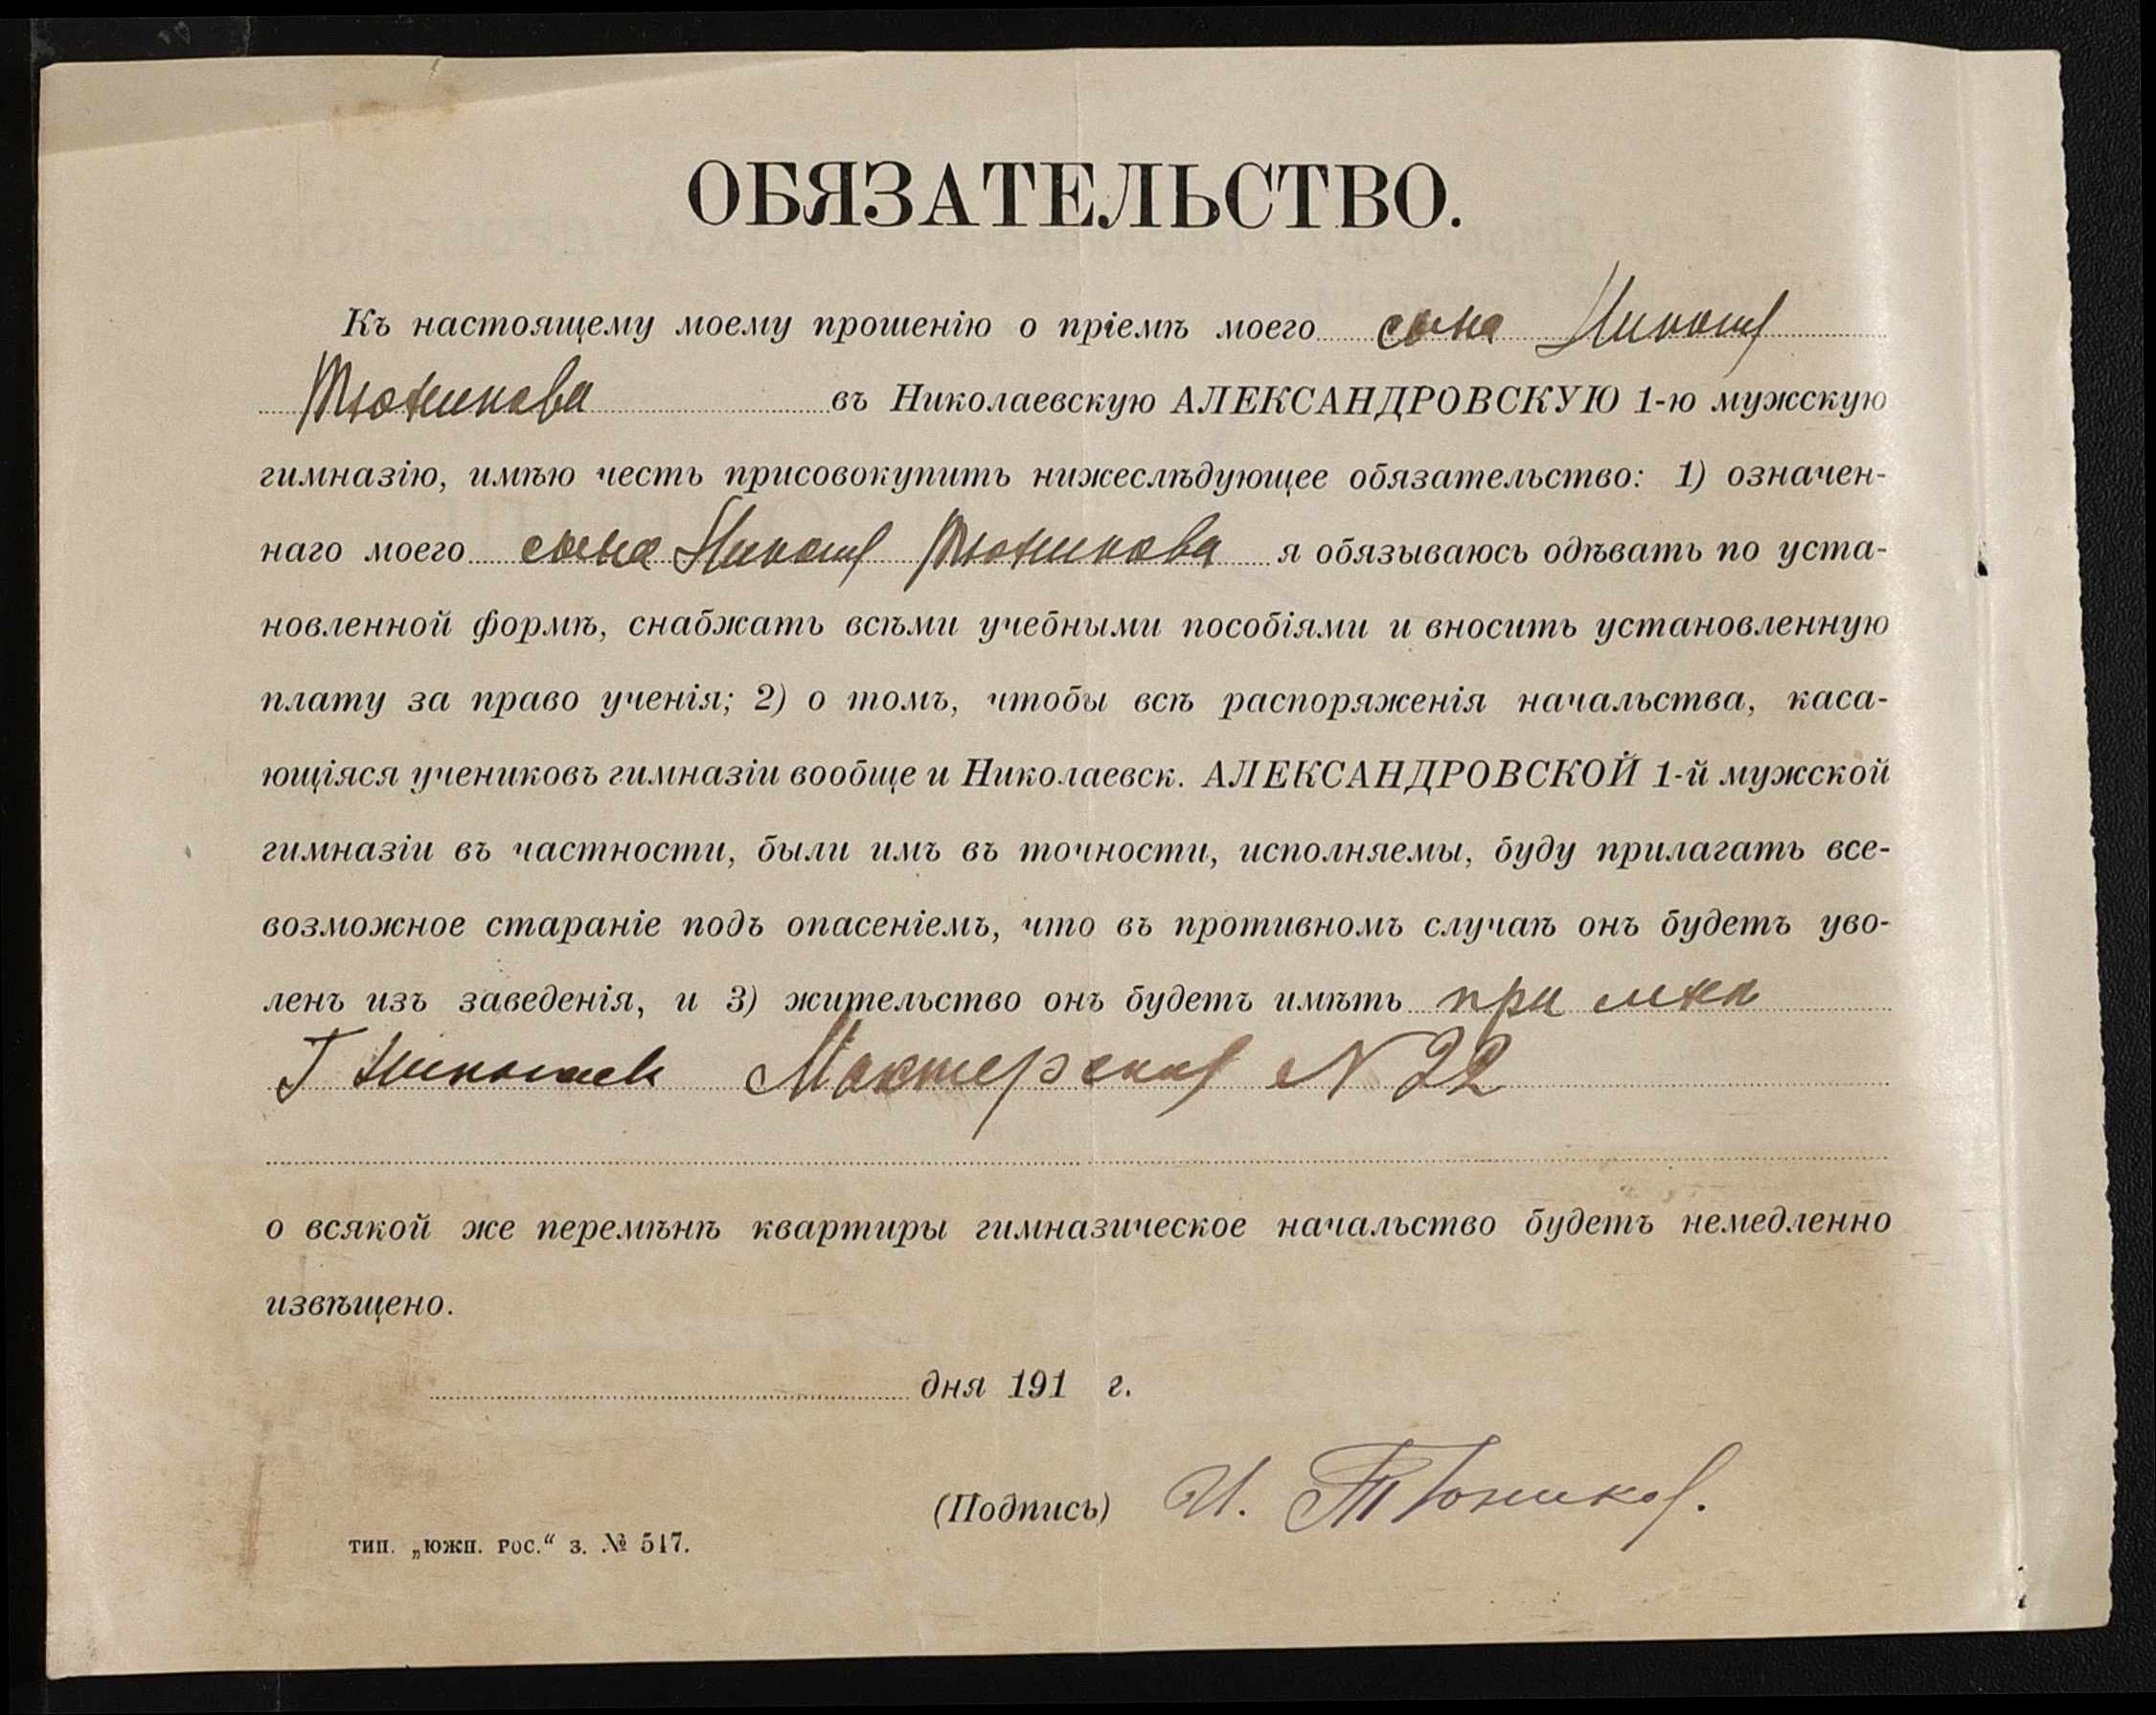 ОБЯЗАТЕЛЬСТВО.
Къ настоящему моему прошенію о пріемѣ моего сына
Тюникова въ Николаевскую АЛЕКСАНДРОВСКУЮ 1-ю мужскую
гимназію, имѣю честь присовокупить нижеслѣдующее обязательство: 1) означен-
наго моего сына Тюникова я обязываюсь одѣвать по уста-
новленной формѣ, снабжать всѣми учебными пособіями и вносить установленную
плату за право ученія; 2) о томъ, чтобы всѣ распоряженія начальства, каса-
ющіяся учениковъ гимназіи вообще и Николаевск. АЛЕКСАНДРОВСКОЙ 1-й мужской
гимназіи въ частности, были имъ въ точности, исполняемы, буду прилагать все-
возможное стараніе подъ опасеніемъ, что въ противномъ случаѣ онъ будетъ уво-
ленъ изъ заведенія, и 3) жительство онъ будетъ имѣть при мнѣ
Г Николаев N 22
о всякой же перемѣнѣ квартиры гимназическое начальство будетъ немедленно
извѣщено.
дня 191 г.
(Подпись) И. Тюников.
тип. „южн. рос.“ з. № 517.